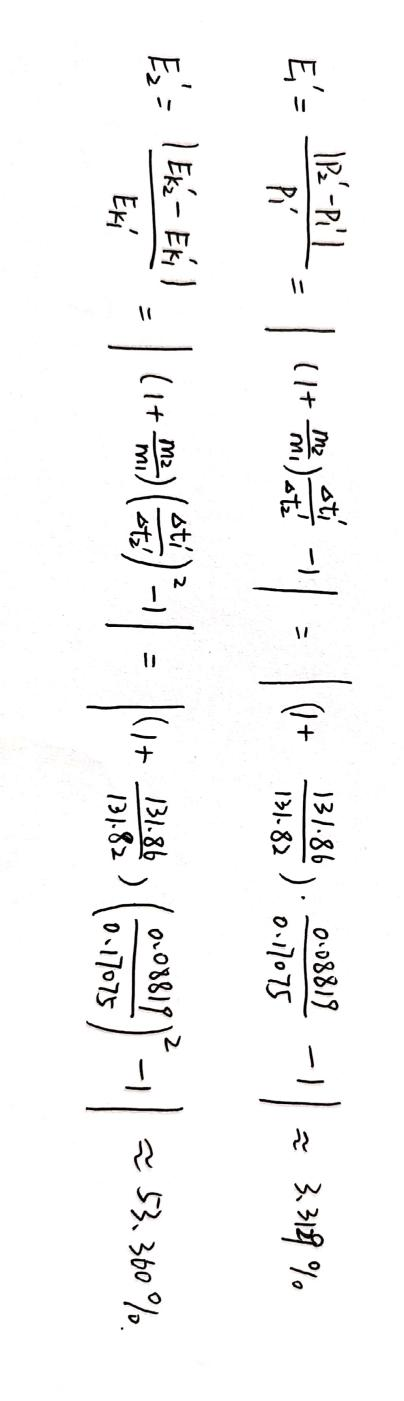 E₁' = |P₂' - P₁'| / P₁' = |(1 + m₂/m₁) Δt₁'/Δt₂' - 1| = |(1 + 131.86/131.82) · 0.08819/0.17075 - 1| ≈ 3.312%
E₂' = |Ek₂' - Ek₁'| / Ek₁' = |(1 + m₂/m₁)(Δt₁'/Δt₂')² - 1| = |(1 + 131.86/131.82)(0.08819/0.17075)² - 1| ≈ 53.360%.